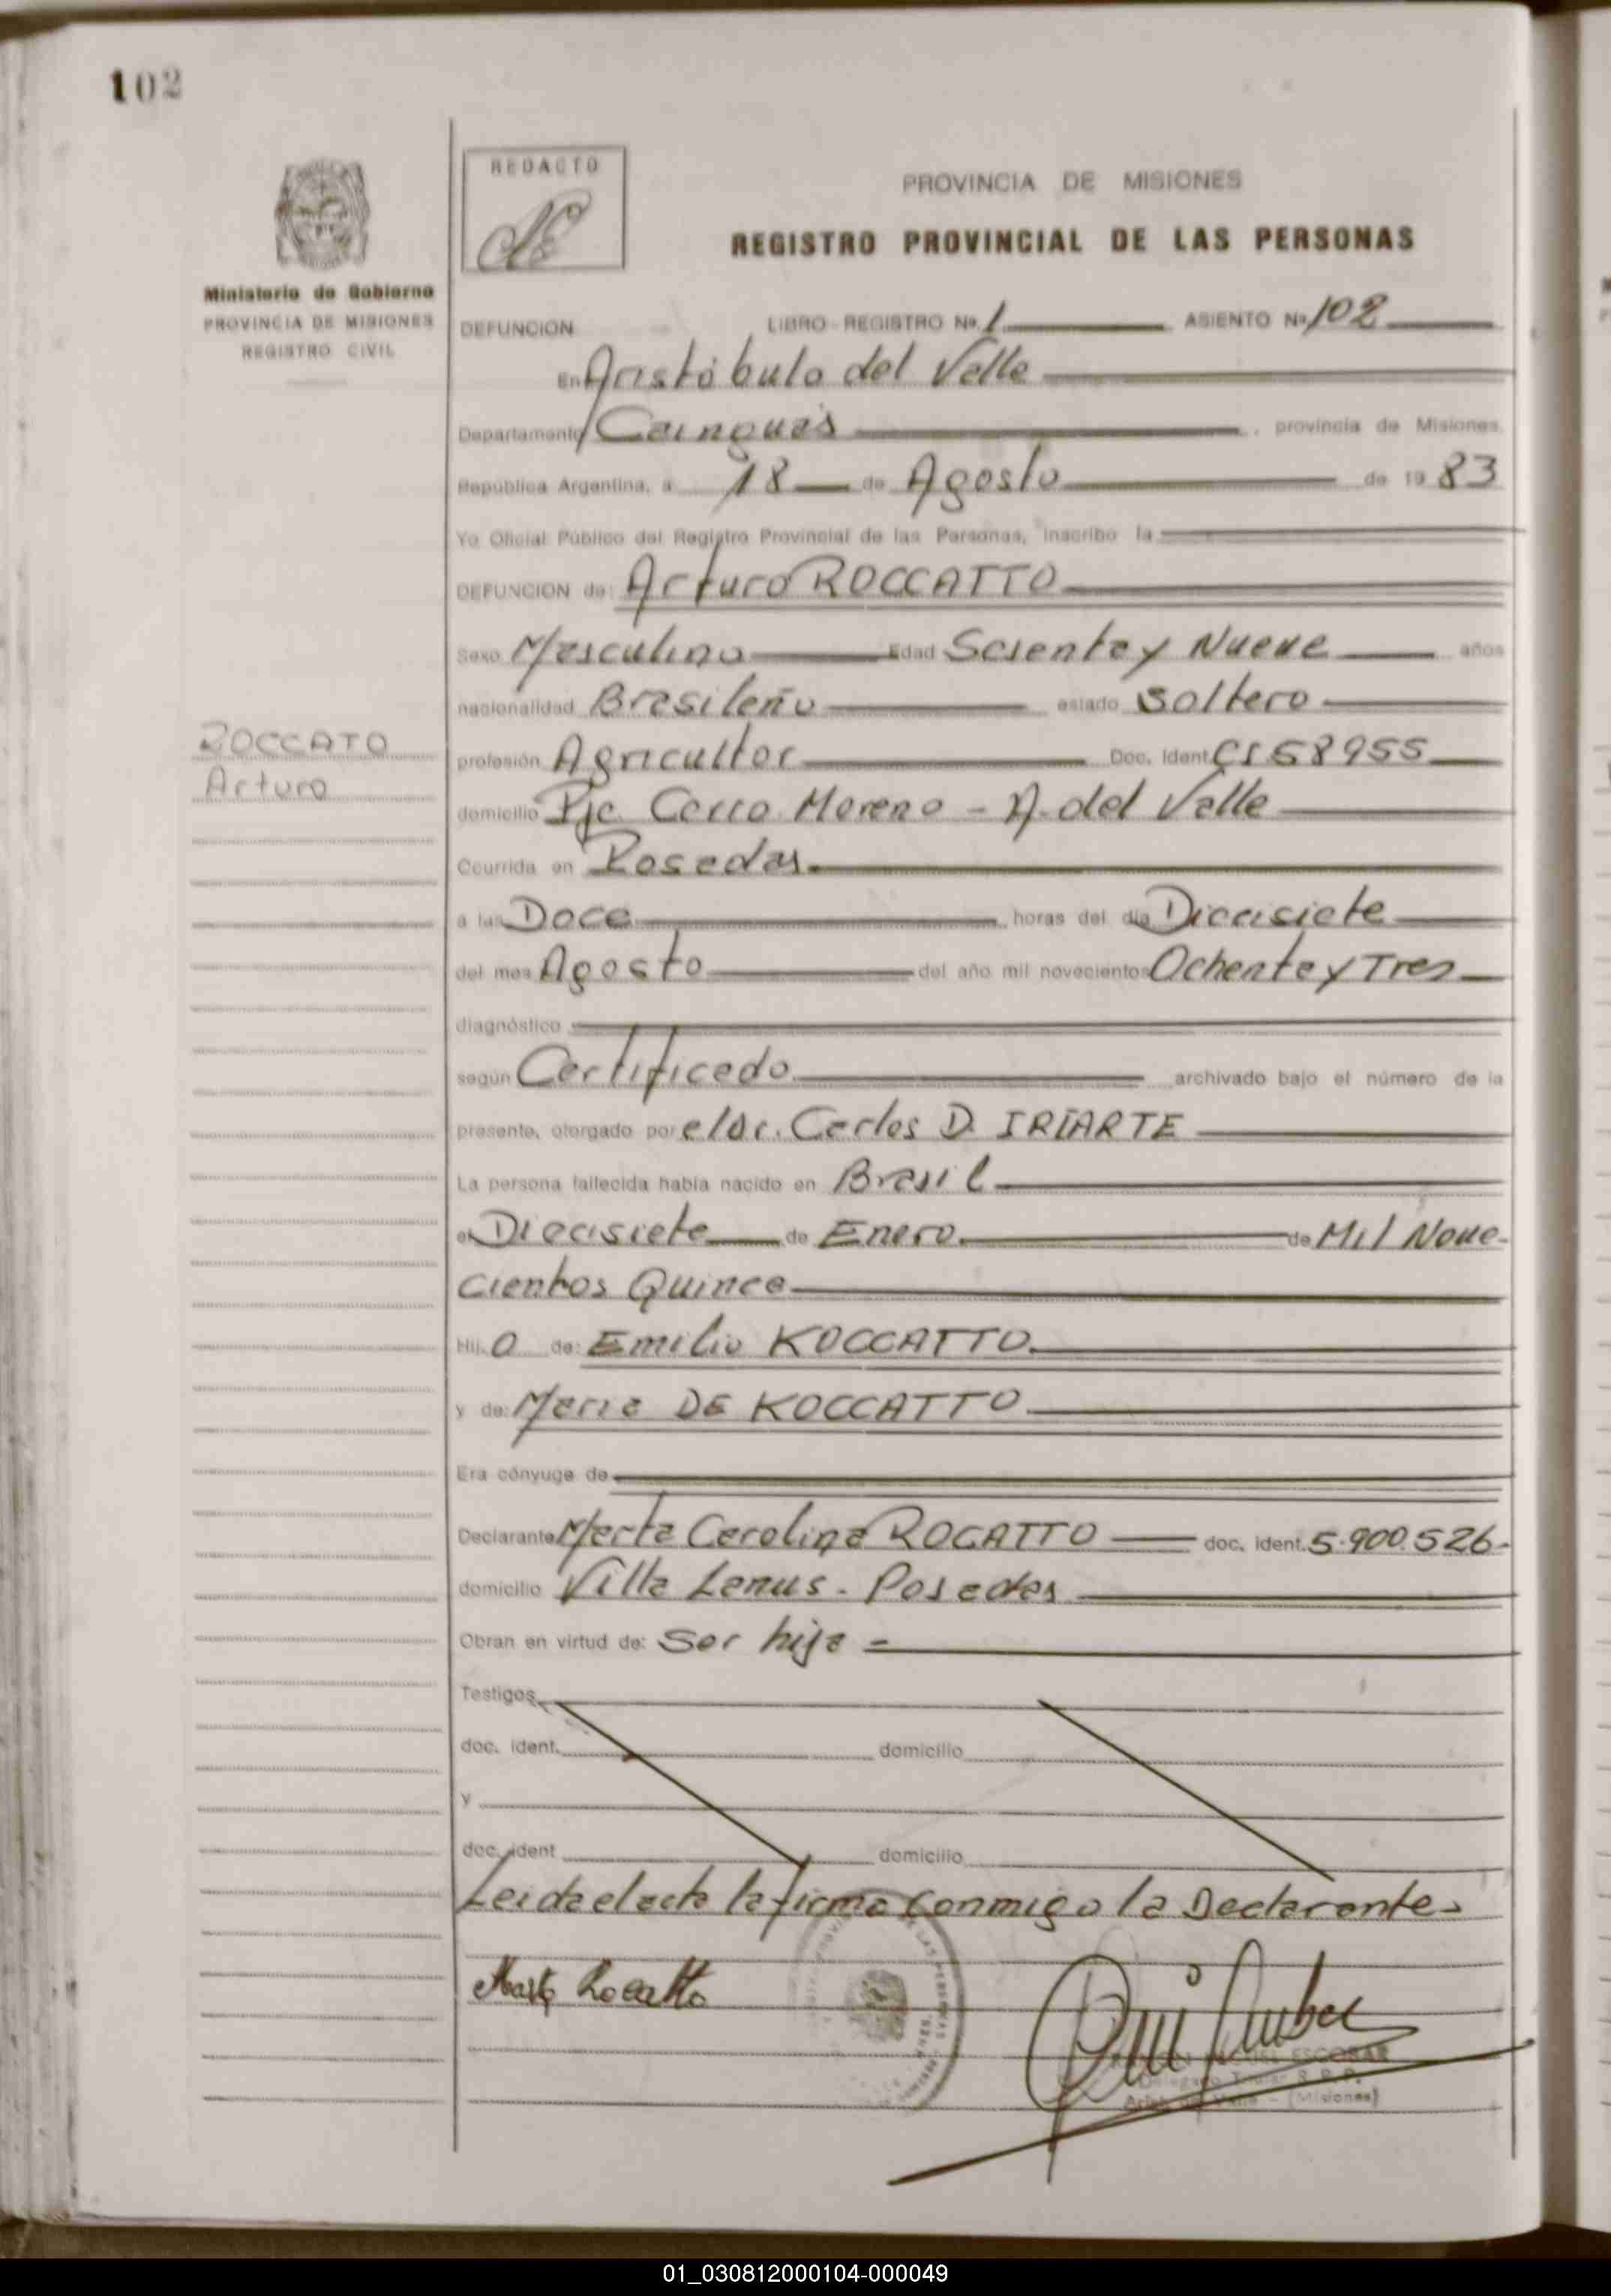 102
REDACTO
PROVINCIA DE MISIONES
REGISTRO PROVINCIAL DE LAS PERSONAS
Ministerio de Gobierno
PROVINCIA DE MISIONES
REGISTRO CIVIL
DEFUNCION LIBRO - REGISTRO Nº 1 ASIENTO Nº 102
En Aristóbulo del Valle
Departamento Cainguás, provincia de Misiones,
República Argentina, a 18 de Agosto de 19 83
Yo Oficial Público del Registro Provincial de las Personas, inscribo la
DEFUNCION de: Arturo ROCCATTO
Sexo Masculino Edad Sesenta y Nueve años
nacionalidad Brasileño estado Soltero
ROCCATO
Arturo
profesión Agricultor Doc. Ident CI 58955
domicilio Pje Cerro Moreno - A. del Valle
Ocurrida en Posadas.
a las Doce horas del día Diecisiete
del mes Agosto del año mil novecientos Ochenta y Tres
diagnóstico
según Certificado archivado bajo el número de la
presente, otorgado por el Dr. Carlos D. IRIARTE
La persona fallecida había nacido en Brasil
el Diecisiete de Enero. de Mil Nove-
cientos Quince
Hij o de: Emilio KOCCATTO.
y de: Maria DE KOCCATTO
Era cónyuge de
Declarante Marta Carolina ROCATTO doc. ident. 5.900.526-
domicilio Villa Lanus - Posadas
Obran en virtud de: Ser hija -
Testigos
doc. ident. domicilio
y
doc. ident domicilio
Leida el acta la firma conmigo la Declarante-
Marta Rocatto
ESCOBAR
Delegado Titular R.P.P.
Arist. del Valle - (Misiones)
01_030812000104-000049